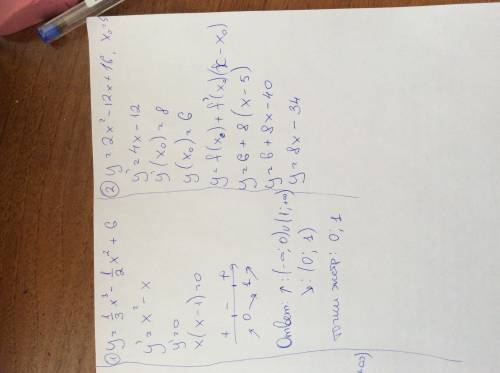 ① y = 1/3 x³ - 1/2 x² + 6
y' = x² - x
y' = 0
x(x-1) = 0
+ - +
0 1
Ответ: ↑: (-∞; 0) ∪ (1; +∞)
↘: (0; 1)
точки экстр: 0; 1
② y = 2x² - 12x + 16, x₀ = 5
y' = 4x - 12
y'(x₀) = 8
y(x₀) = 6
y = f(x₀) + f'(x₀)(x - x₀)
y = 6 + 8(x - 5)
y = 6 + 8x - 40
y = 8x - 34